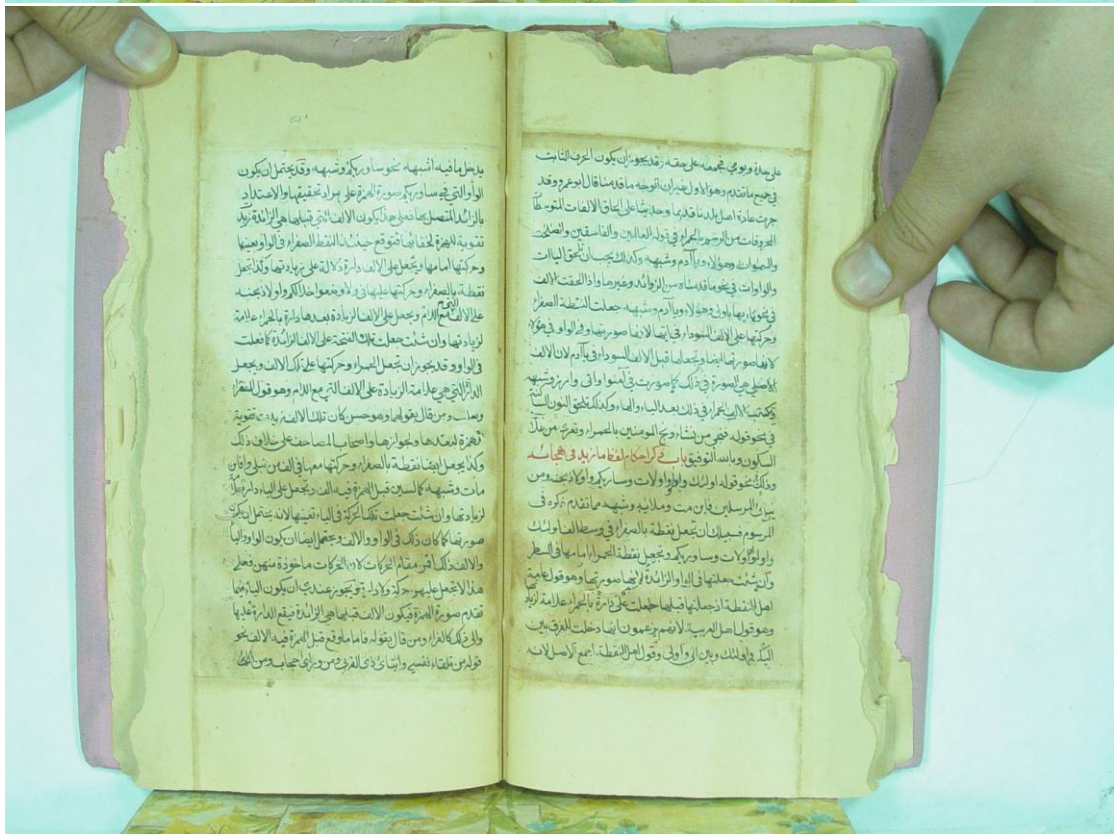 على حدة ويومي فجمعه على حقه وقد يجوز ان يكون الحرف الثابت
في جميع ما تقدم وهو الاول غير ان الوجه ما قدمنا قال ابو عمرو وقد
جرت عادة اهل بلدنا قديما وحديثا على الحاق الالفات المتوسطات
المحذوفات من الرسم بالحمراء في قوله العالمين والفاسقين
والسموات وهؤلاء ويآدم وشبهه وكذلك يجب ان تلحق الياات
والواوات في نحو ما قدمناه من الزوائد وغيرها واذا الحقت الالف
في نحو يا ايها يا اولي وهؤلاء ويآدم وشبهه جعلت النقطة الصفراء
وحركتها على الالف السوداء في ايها لانها صورتها وفي الواو في هؤلاء
لانها صورتها ايضا وتجعلها قبل الالف السوداء في يآدم لان الالف
في ذلك كما صورت في آمنوا وآتى وآزر وشبهه
وكتب الالف الحمراء في ذلك بعد الياء والهاء وكذلك تلحق النون الساكنة
في نحو قوله فنجي من نشاء وننج المؤمنين بالحمراء وتعرى من علامة
السكون وبالله التوفيق باب ذكر احكام نقط ما زيد في هجائه
وذلك نحو قوله اولئك واولوا واولات وساوريكم واولاذبحنه ومن
نبإي المرسلين فإين مت وملائه وشبهه مما تقدم ذكره في
المرسوم فسبيلك ان تجعل نقطة بالصفراء في وسط الف اولئك
واولوا واولات وساوريكم وتجعل نقطة الحمراء امامها في السطر
وان شئت جعلتها في الواو الزائدة لانها صورتها وهو قول عامة
اهل النقط اذ جعلتها قبلها جعلت على دارة بالحمراء علامة لزيادتها
وهو قول اهل العربية لانهم يزعمون انها دخلت للفرق بين
اليك واولئك وبين الى واولى وقول اهل النقط اجمع للاصل لانه
يدخل ما فيه اشبهه نحو ساوريكم وشبهه وقد يحتمل ان يكون
الواو التي في ساوريكم صورة الهمزة على مراد تحقيقها والاعتداد
بالزائد المتصل بها فعلى هذا يكون الالف التي قبلها هي الزائدة زيد
تقوية للهمزة لخفائها فتوقع حينئذ النقط الصفراء في الواو بعينها
وحركتها امامها وتجعل على الالف دارة دلالة على زيادتها وكذا تجعل
نقطة بالصفراء وحركتها عليها في ولاوضعوا خلالكم واولاذبحنه
على الالف التي مع اللام وتجعل على الالف الزيادة بعدها دارة بالحمراء علامة
لزيادتها وان شئت جعلت تلك الفتحة على الالف الزائدة كما فعلت
في الواو وقد يجوز ان تجعل الحمراء وحركتها على تلك الالف وتجعل
الدارة التي هي علامة الزيادة على الالف التي مع اللام وهو قول الفراء
وثعلب ومن قال بقولهما وهو حسن كان تلك الالف زيدت تقوية
للهمزة لبعدها ولجوازها واصحاب المصاحف على خلاف ذلك
وكذا تجعل ايضا نقطة بالصفراء وحركتها معها في الف من نبإي وافإين
مات وشبهه مما ليس قبل الهمزة فيه الف وتجعل على الياء دارة علامة
لزيادتها وان شئت جعلت تلك الحركة في الياء نفسها لانه يحتمل ان يكون
صورتها كما كان ذلك في الواو والالف ويحتمل ايضا ان يكون الواو والياء
والالف ذلك اقيم مقام الحركات لان الحركات ماخوذة منهن فعلى
هذا لا تجعل عليهن حركة ولا دارة ويجوز عندي ان يكون الياء فيما
تقدم صورة الهمزة فيكون الالف قبلها هي الزائدة فيقع الدارة عليها
والى ذلك كالفراء ومن قال بقوله فاما ما وقع قبل الهمزة فيه الالف نحو
قوله من تلقاء نفسي وايتائ ذي القربى ومن ورائ حجاب ومن انائ